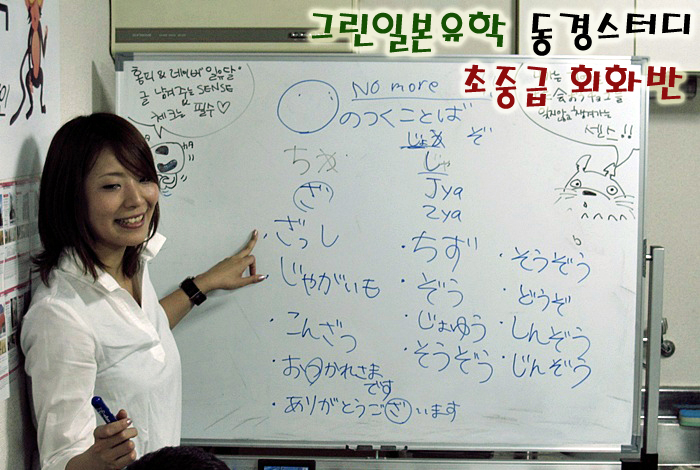 그린일본유학 동경스터디
초중급 회화반
홈피 & 네이버 "일유달"
글 남겨 주는 SENSE
체크는 필수♡
센스!!
NO more
◯のつくことば
ぞ
じゃ
Jya
Zya
ざ
ざっし
じゃがいも
こんざつ
おつかれさま
です
ありがとうございます
ちず
ぞう
じょゆう
そうぞう
そうぞう
どうぞ
しんぞう
じんぞう